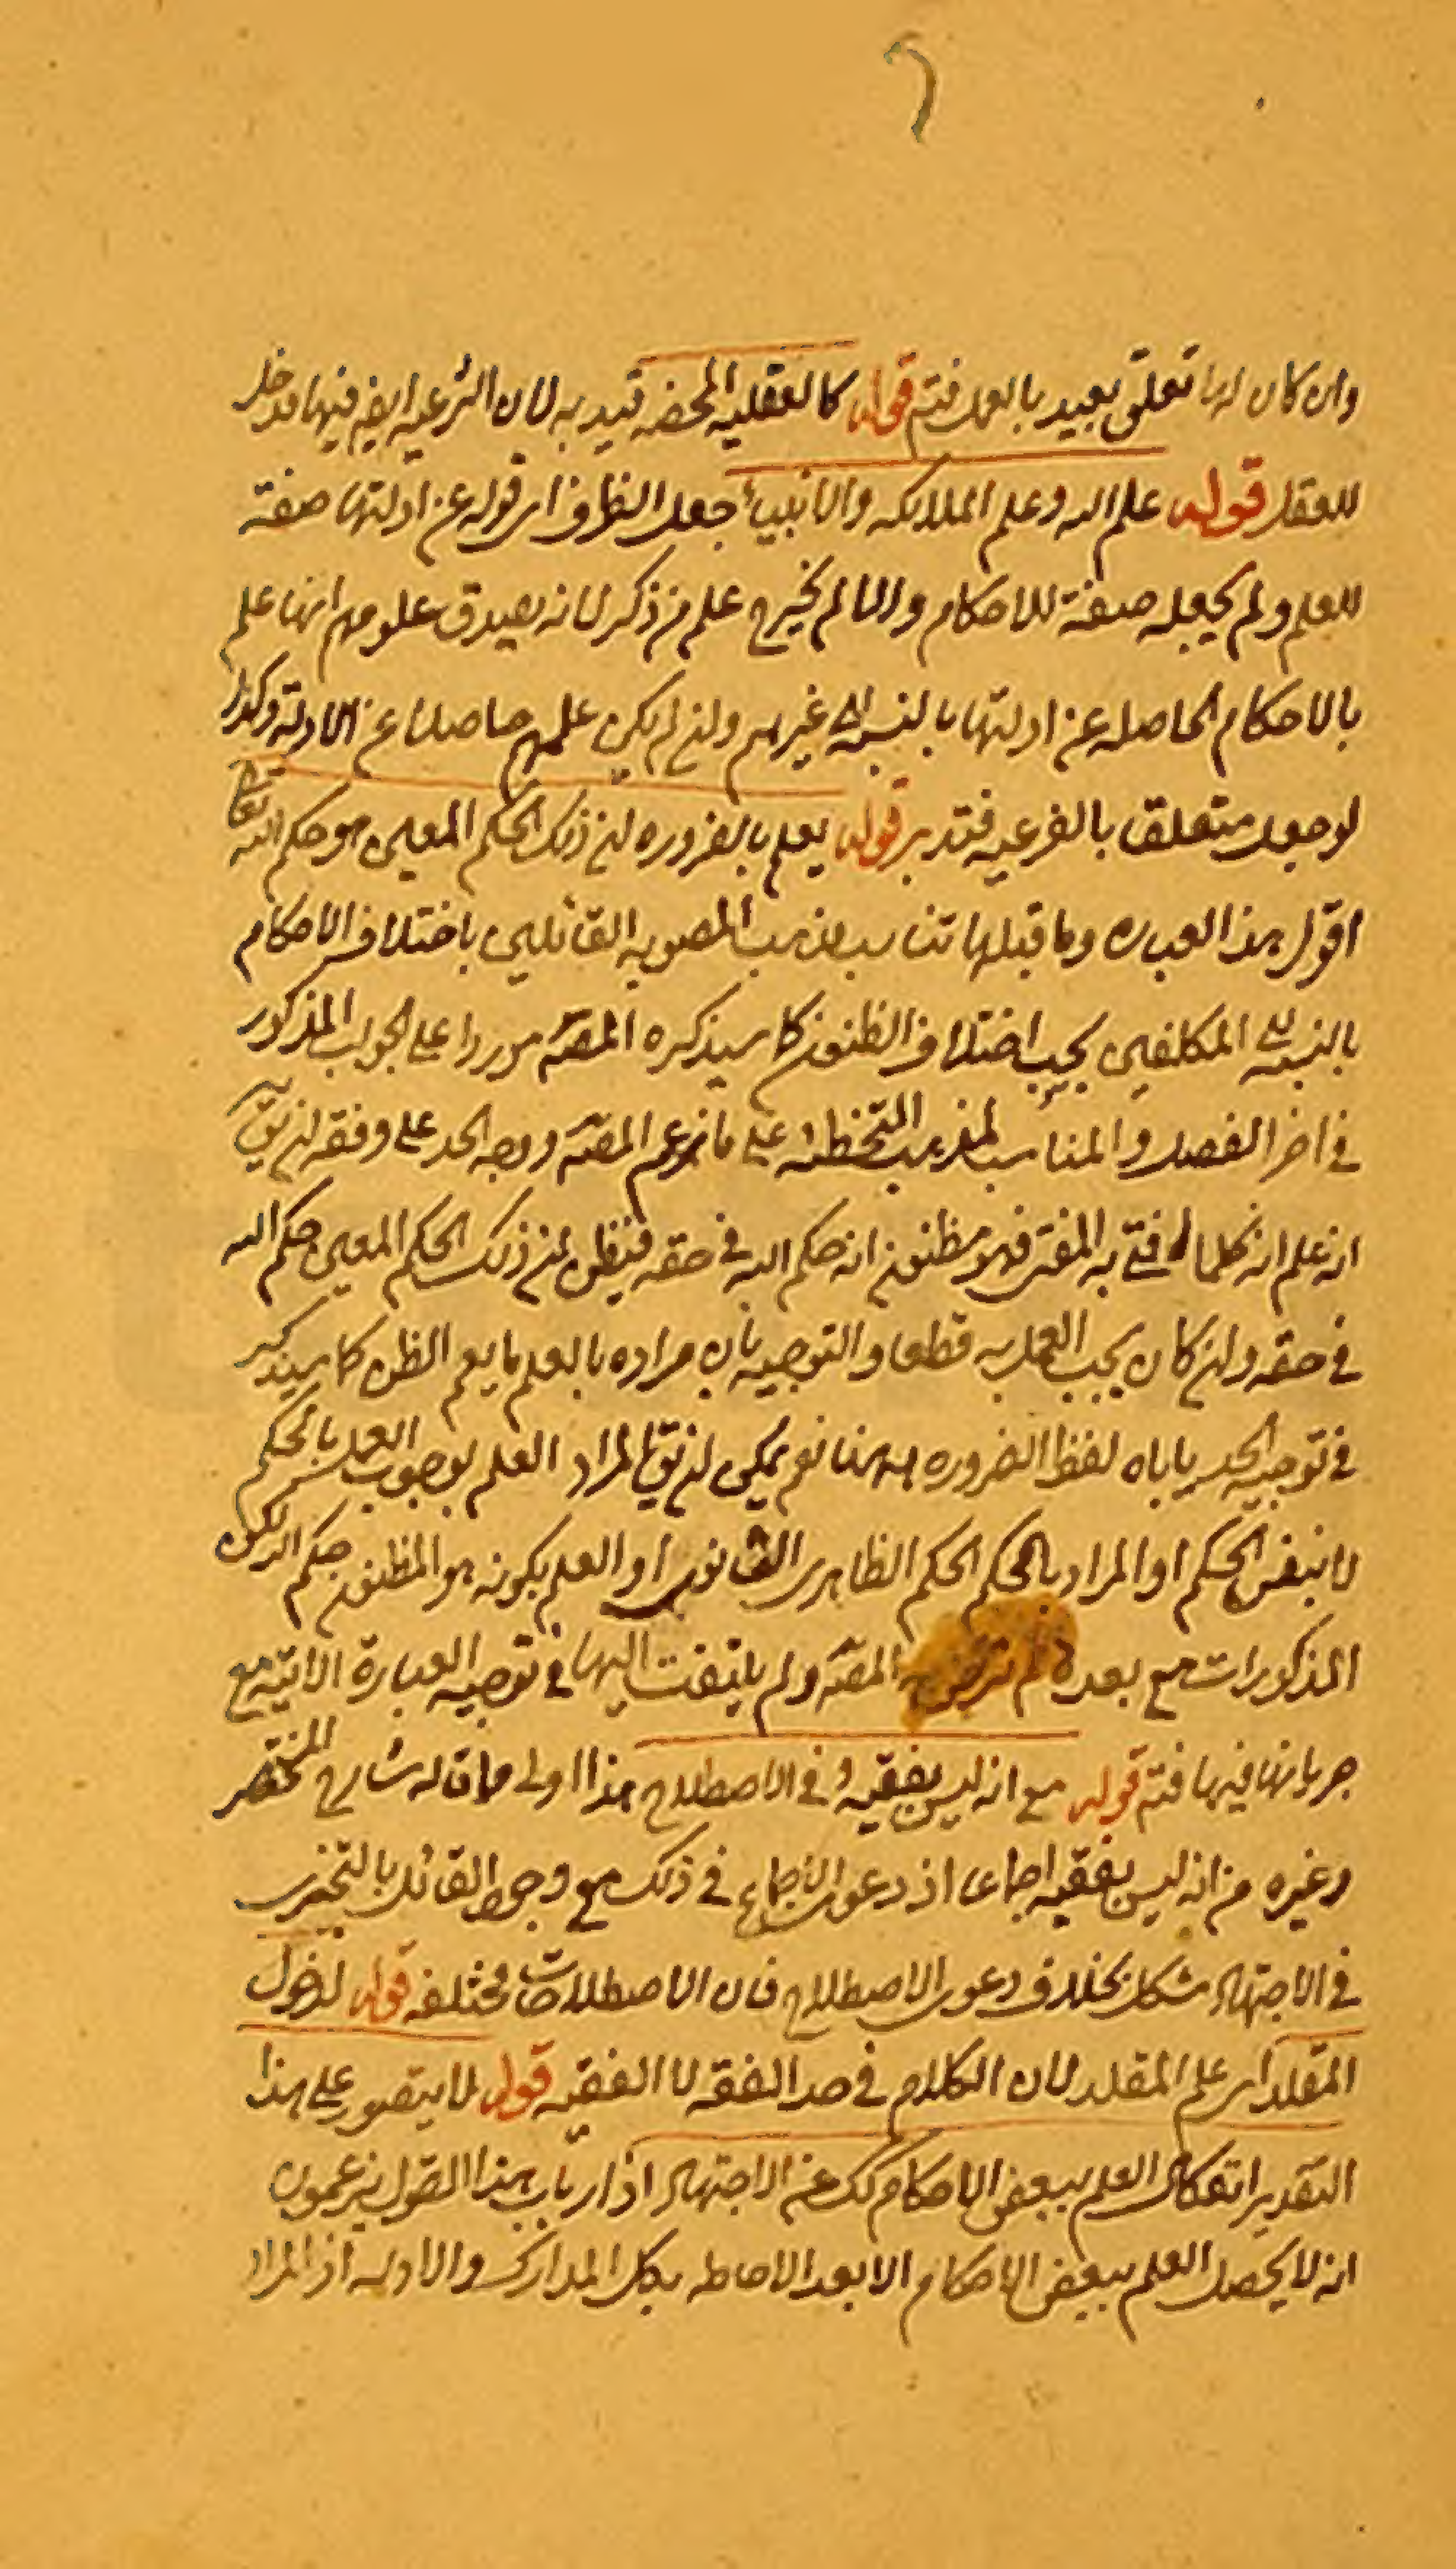 وان كان لها تعلق بعيد بالعمل فتم قوله كالعقليه المحضه قيد به لان الشرعيه ايض فيها مدخل
للعقل قوله علم الله وعلم الملائكه والانبياء جعل الظرف اى قوله عن ادلتها صفة
للعلم ولم يجعله صفة للاحكام والا لم يخرج علم من ذكر لانه يصدق علومهم انها علم
بالاحكام الحاصله عن ادلتها بالنسبه الى غيرهم وان لم يكن علمهم حاصلا عن الادلة وكذا
لو جعل متعلقا بالفرعيه فتدبر قوله يعلم بالضروره ان ذلك الحكم المعين هو حكم الله تعالى
اقول هذا العباره وما قبلها تناسب مذهب المصوبه القائلين باختلاف الاحكام
بالنسبه الى المكلفين بحسب اختلاف الظنون كما سيذكره المصّ موردا على الجواب المذكور
فى اخر الفصل والمناسب لمذهب التخطئه على ما زعم المصّ ووجه الحد على وفقه ان يقّ
انه علم انه كلما افتى به المفتى فهو مظنون انه حكم الله فى حقه فيظن ان ذلك الحكم المعين حكم الله
فى حقه وان كان يجب العمل به قطعا والتوجيه بان مراده بالعلم ما يعم الظن كما سيذكر
فى توجيه الحد ياباه لفظ الضروره ههنا نعم يمكن ان يقّ المراد العلم بوجوب العمل بالحكم
لا بنفس الحكم او المراد بالحكم الحكم الظاهرى القانونى او العلم بكونه هو المظنون حكم الله لكن
المذكورات مع بعده لم المصّ ولم يلتفت اليها فى توجيه العبارة الاتيه مع
جريانها فيها فتم قوله مع انه ليس بفقيه فى الاصطلاح هذا اولى مما قاله شارح المختصر
وغيره من انه ليس بفقيه اجماعا اذ دعوى الاجماع فى ذلك مع وجود القائل بالتجزى
فى الاجتهاد مشكل بخلاف دعوى الاصطلاح فان الاصطلاحات مختلفه قوله لدخول
المقلد اى علم المقلد لان الكلام فى حد الفقه لا الفقيه قوله لا يتصور على هذا
التقدير انفكاك العلم ببعض الاحكام كك عن الاجتهاد اذ ارباب هذا القول يزعمون
انه لا يحصل العلم ببعض الاحكام الا بعد الاحاطه بكل المدارك والادله اذ المراد